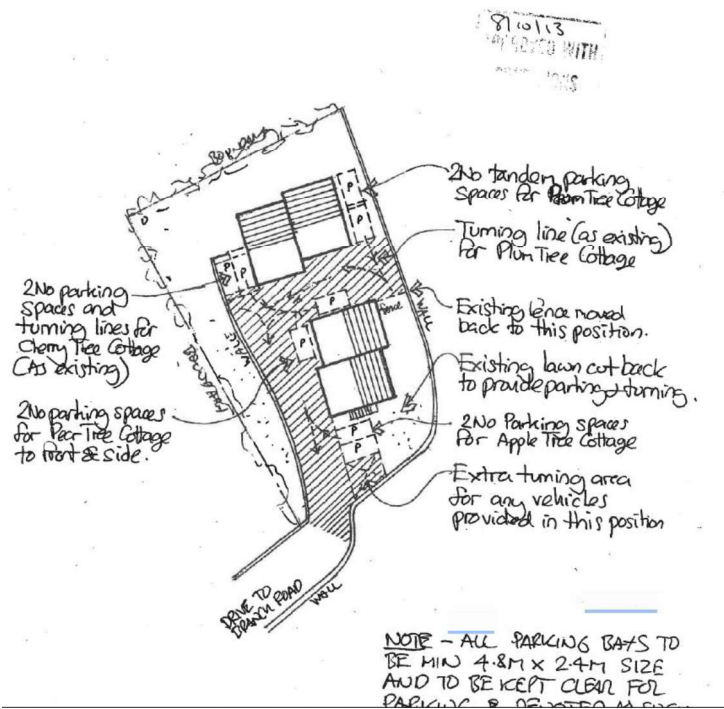 8/10/13
WITH
BOUNDARY
P
P
P
P
P
P
P
P
2No tandem parking
Spaces for Plum Tree Cottage
Turning line (as existing)
for Plum Tree Cottage
Existing fence moved
back to this position.
Existing lawn cut back
to provide parking + turning.
2No Parking spaces
for Apple Tree Cottage
Extra turning area
for any vehicles
provided in this position
2No parking
spaces and
turning lines for
Cherry Tree Cottage
(As existing)
2No parking spaces
for Pear Tree Cottage
to front & side.
fence
WALL
WALL
DRIVE TO
BRANCH ROAD
WALL
NOTE - ALL PARKING BAYS TO
BE MIN 4.8M X 2.4M SIZE
AND TO BE KEPT CLEAR FOR
PARKING &